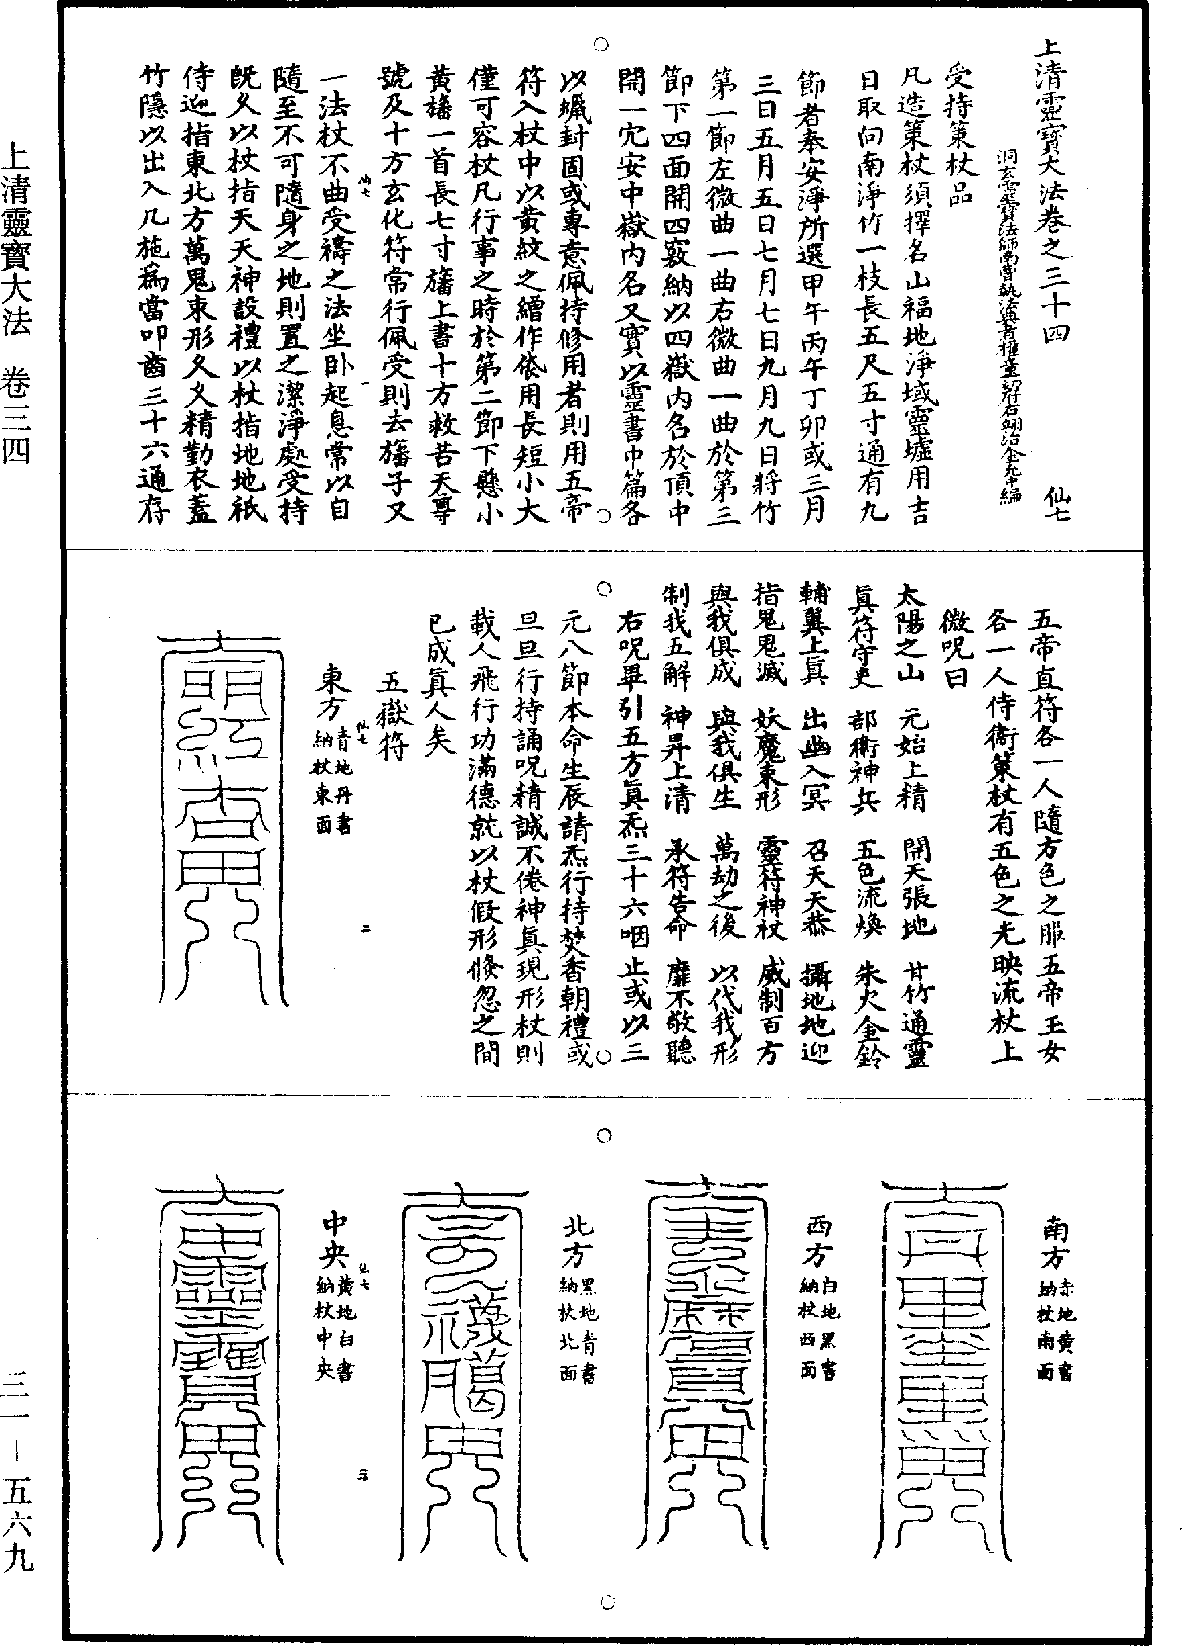 上清靈寶大法卷之三十四　仙七
洞玄靈寶法師南曹執法典者權童初府右翊治金允中編
受持策杖品
凡造策杖須擇名山福地淨域靈墟用吉
日取向南淨竹一枝長五尺五寸通有九
節者奉安淨所選甲午丙午丁卯或三月
三日五月五日七月七日九月九日將竹
第一節左微曲一曲右微曲一曲於第三
節下四面開四竅納以四嶽內名於頂中
開一穴安中嶽內名又實以靈書中篇各
以蠟封固或專意佩持修用者則用五帝
符入杖中以黃紋之繒作帒用長短小大
僅可容杖凡行事之時於第二節下懸小
黃旛一首長七寸旛上書十方救苦天尊
號及十方玄化符常行佩受則去旛子又
一法杖不曲受禱之法坐臥起息常以自
隨至不可隨身之地則置之潔淨處受持
既久以杖指天天神設禮以杖指地地祇
侍迎指東北方萬鬼束形久久精勤衣蓋
竹隱以出入凡施為當叩齒三十六通存
五帝直符各一人隨方色之服五帝玉女
各一人侍衛策杖有五色之光映流杖上
微呪曰
太陽之山　元始上精　開天張地　甘竹通靈
真符守吏　部衛神兵　五色流煥　朱火金鈴
輔翼上真　出幽入冥　召天天恭　攝地地迎
指鬼鬼滅　妖魔束形　靈符神杖　威制百方
與我俱成　與我俱生　萬劫之後　以代我形
制我五解　神昇上清　承符告命　靡不敬聽
右呪畢引五方真炁三十六咽止或以三
元八節本命生辰請炁行持焚香朝禮或
旦旦行持誦呪精誠不倦神真現形杖則
載人飛行功滿德就以杖假形倏忽之間
已成真人矣
五嶽符
東方青地丹書納杖東面
仙七　二
南方赤地黃書納杖南面
西方白地黑書納杖西面
北方黑地青書納杖北面
中央黃地白書納杖中央
仙七　三
上清靈寶大法　卷三四
三一—五六九